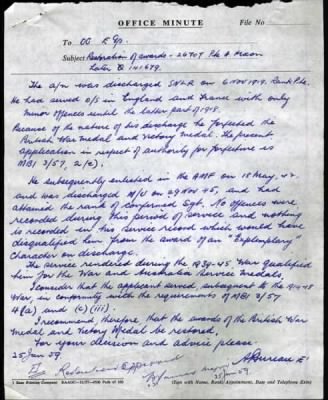 OFFICE MINUTE
File No
To OG R Gp.
Subject Restoration of awards - 2670T Pte A. Nixon
Later Q 141679.
The a/n was discharged SNLR on 6 Nov 1919. Rank Pte.
He had served o/s in England and France with only
minor offences until the latter part of 1918.
Because of the nature of his discharge he forfeited the
British War Medal and Victory Medal. The present
application in respect of authority for forfeiture is
MBI 3/57, 2(c).
He subsequently enlisted in the AMF on 18 May, 42
and was discharged M/U on 29 Nov 45, and had
attained the rank of confirmed Sgt. No offences were
recorded during this period of service and nothing
is recorded in his service record which would have
disqualified him from the award of an "Exemplary"
character on discharge.
The service rendered during the 1939-45 War qualified
him for the War and Australia Service Medals.
I consider that the applicant served subsequent to the 1914-18
War, in conformity with the requirements of MBI 3/57
4(a) and (c)(iii).
I recommend therefore that the awards of the British War
Medal and Victory Medal be restored.
For your decision and advice please
25 Jan 59.
Restoration Approved
Jan 59.
(Sign with Name, Rank/Appointment, Date and Telephone Extn)